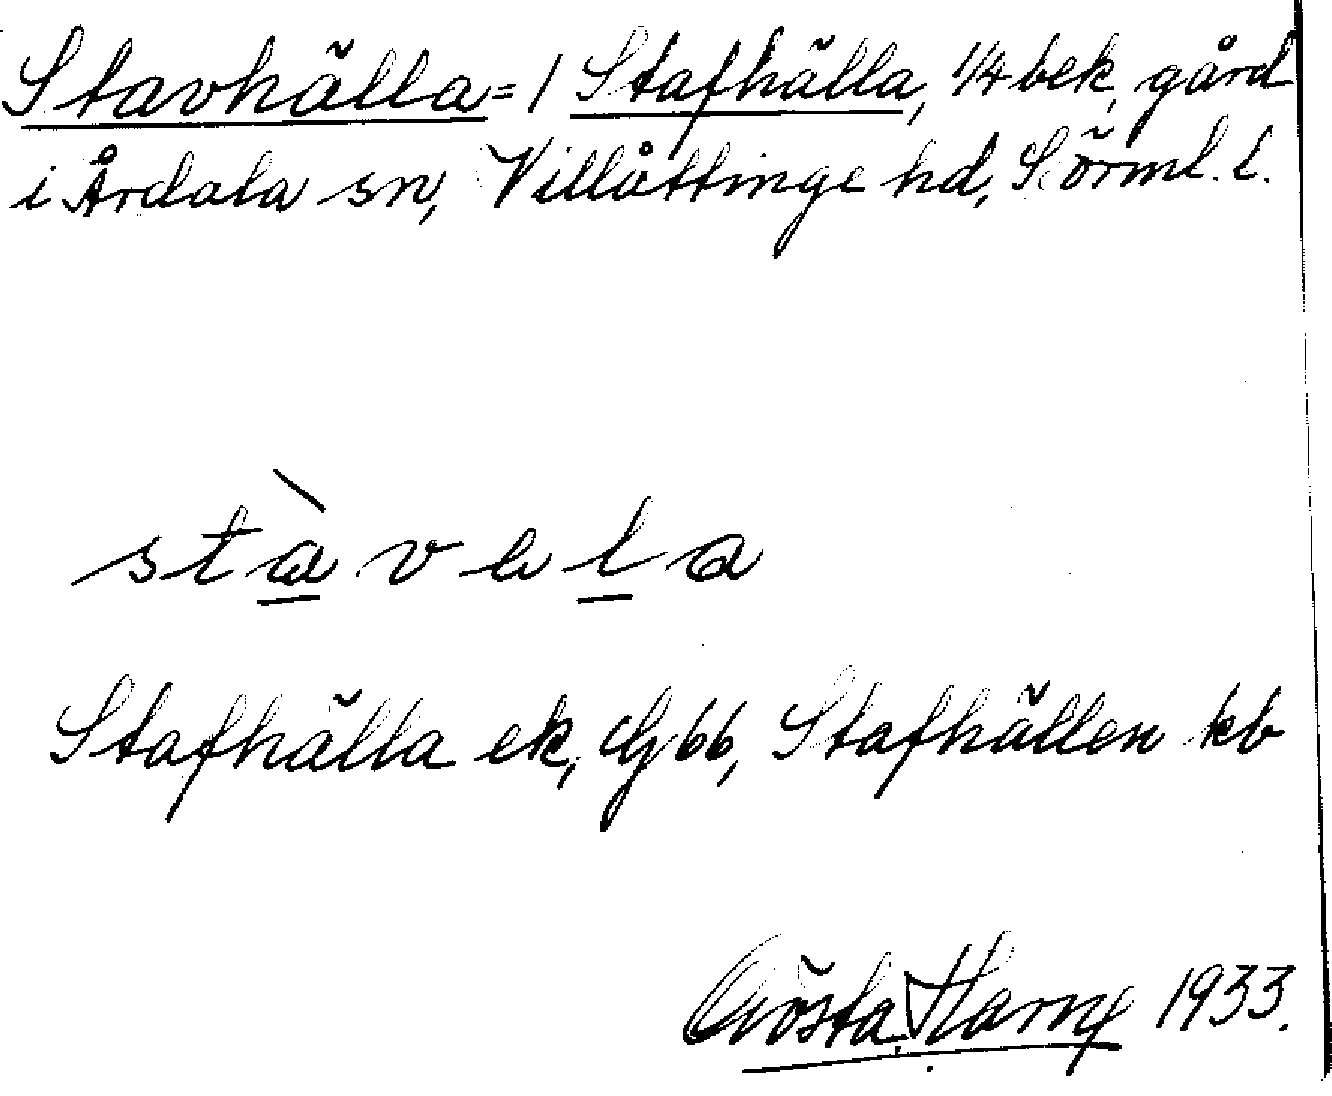 Stavhälla = 1 Stafhälla, 1/4 bek, gård
i Årdala sn, Villåttinge hd, Sörml. l.
stàvela
Stafhälla ek, Gj bb, Stafhällen kb
Gösta Harng 1933.